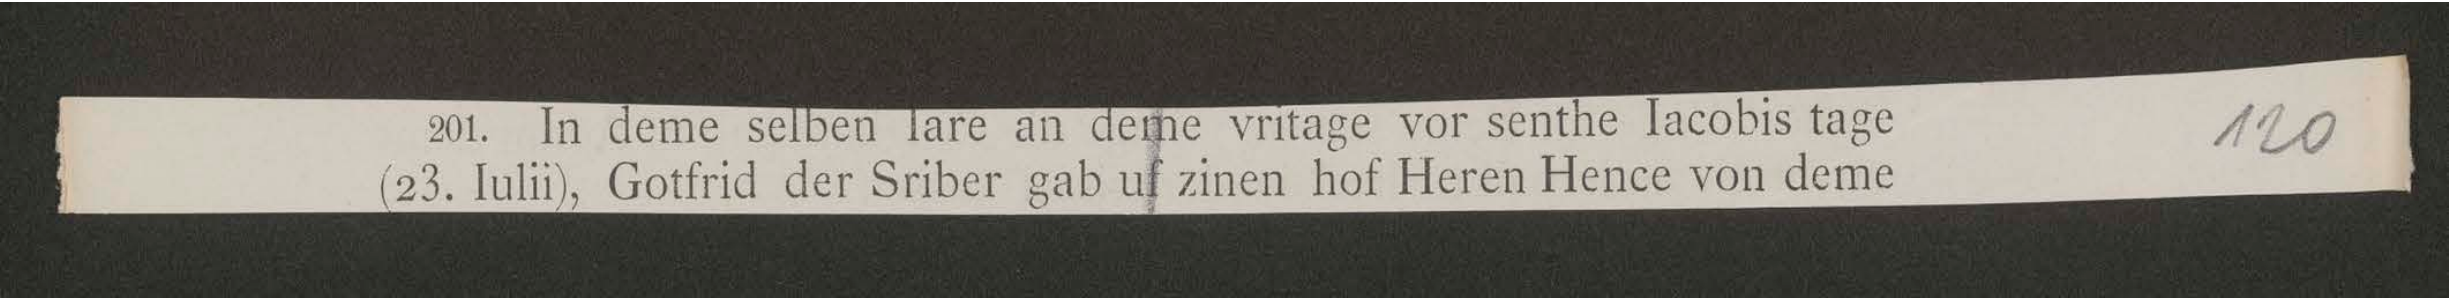 201. In deme selben Iare an deme vritage vor senthe Iacobis tage 120
(23. Iulii), Gotfrid der Sriber gab uf zinen hof Heren Hence von deme